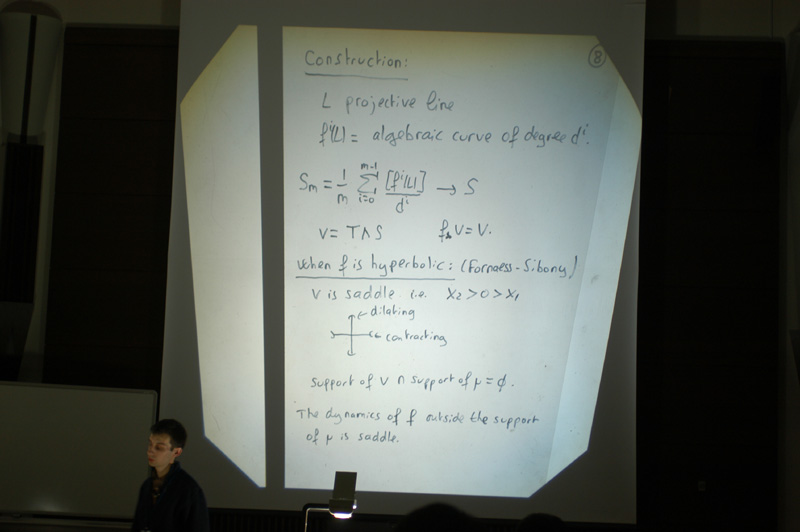 8
Construction:
L projective line
fⁱ(L) = algebraic curve of degree dⁱ.
Sm = 1/m Σ_{i=0}^{m-1} [fⁱ(L)]/dⁱ → S
ν = T∧S f*ν = ν.
When f is hyperbolic: (Fornaess-Sibony)
ν is saddle i.e. χ₂ > 0 > χ₁
← dilating
← contracting
support of ν ∩ support of μ = ∅.
The dynamics of f outside the support
of μ is saddle.